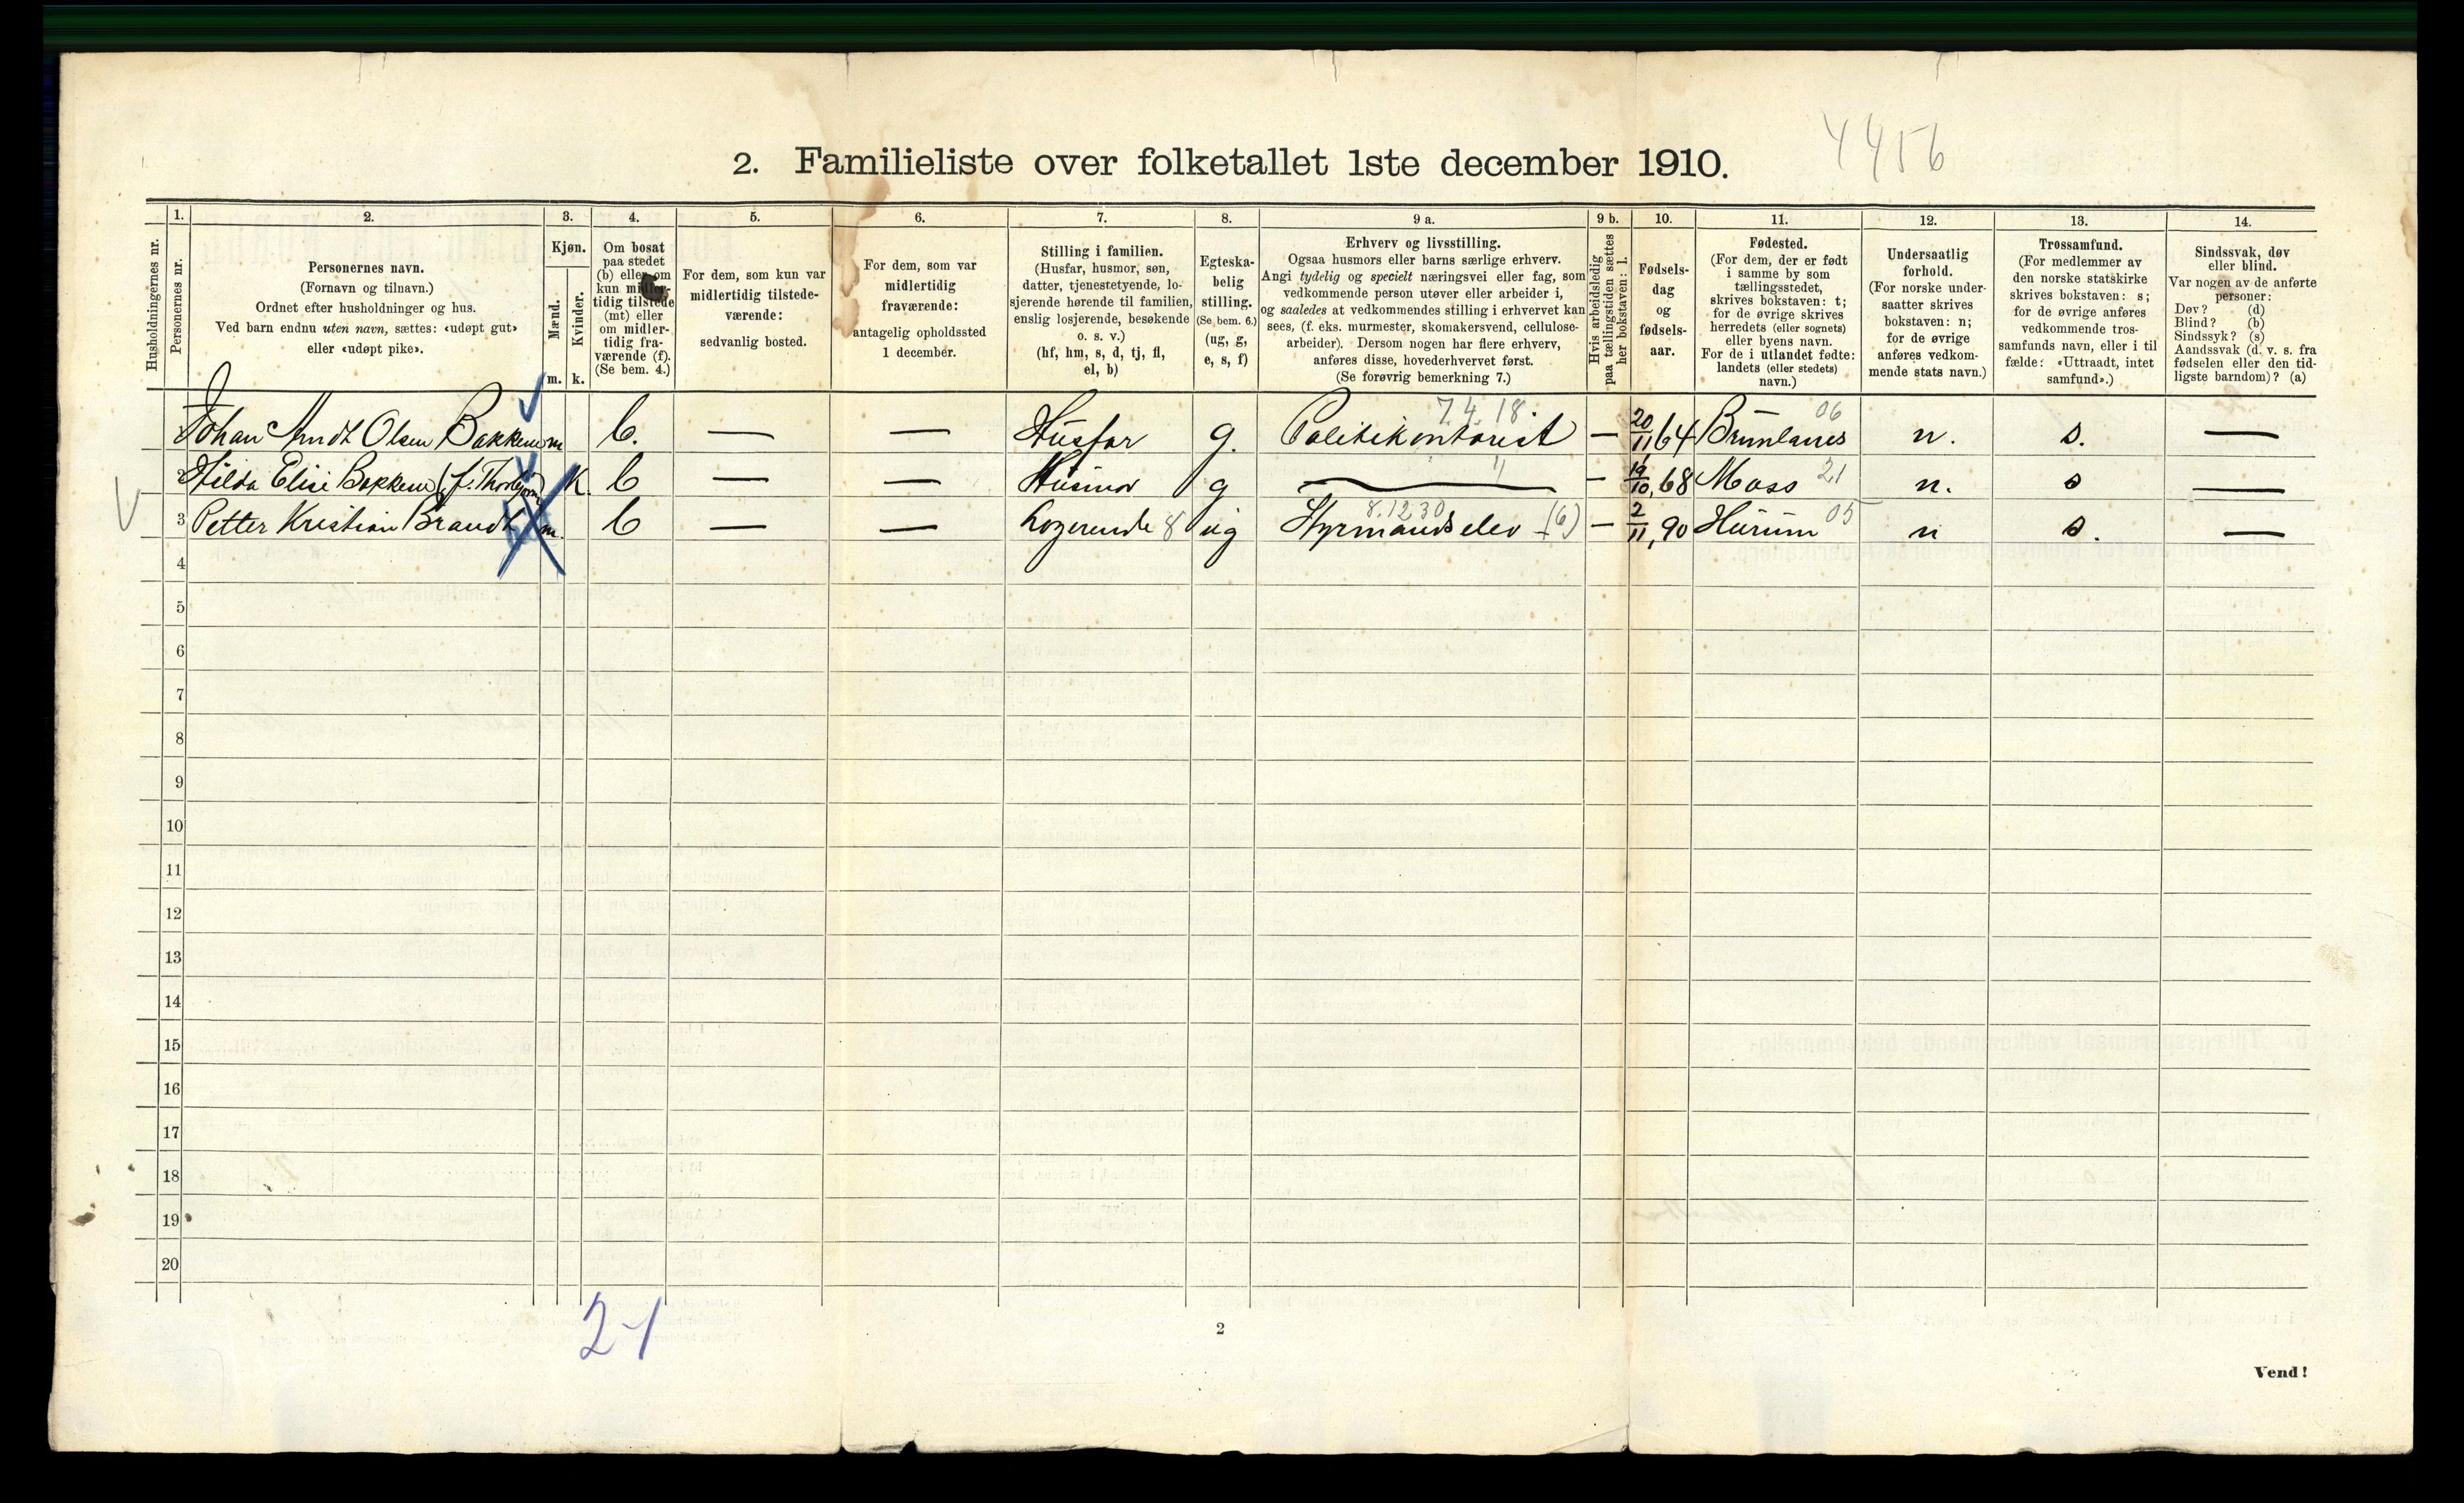 4456
2. Familieliste over folketallet 1ste december 1910.
Husholdningernes nr.
1.
Personernes nr.
2.
Personernes navn.
(Fornavn og tilnavn.)
Ordnet efter husholdninger og hus.
Ved barn endnu uten navn, sættes: «udøpt gut»
eller «udøpt pike».
3.
Kjøn.
Mænd.
Kvinder.
m. k.
4.
Om bosat
paa stedet
(b) eller om
kun midler-
tidig tilstede
(mt) eller
om midler-
tidig fra-
værende (f).
(Se bem. 4.)
5.
For dem, som kun var
midlertidig tilstede-
værende:
sedvanlig bosted.
6.
For dem, som var
midlertidig
fraværende:
antagelig opholdssted
1 december.
7.
Stilling i familien.
(Husfar, husmor, søn,
datter, tjenestetyende, lo-
sjerende hørende til familien,
enslig losjerende, besøkende
o. s. v.)
(hf, hm, s, d, tj, fl,
el, b)
8.
Egteska-
belig
stilling.
(Se bem. 6.)
(ug, g,
e, s, f)
9 a.
Erhverv og livsstilling.
Ogsaa husmors eller barns særlige erhverv.
Angi tydelig og specielt næringsvei eller fag, som
vedkommende person utøver eller arbeider i,
og saaledes at vedkommendes stilling i erhvervet kan
sees, (f. eks. murmester, skomakersvend, cellulose-
arbeider). Dersom nogen har flere erhverv,
anføres disse, hovederhvervet først.
(Se forøvrig bemerkning 7.)
9 b.
Hvis arbeidsledig
paa tællingstiden sættes
her bokstaven: l.
10.
Fødsels-
dag
og
fødsels-
aar.
11.
Fødested.
(For dem, der er født
i samme by som
tællingsstedet,
skrives bokstaven: t;
for de øvrige skrives
herredets (eller sognets)
eller byens navn.
For de i utlandet fødte:
landets (eller stedets)
navn.)
12.
Undersaatlig
forhold.
(For norske under-
saatter skrives
bokstaven: n;
for de øvrige
anføres vedkom-
mende stats navn.)
13.
Trossamfund.
(For medlemmer av
den norske statskirke
skrives bokstaven: s;
for de øvrige anføres
vedkommende tros-
samfunds navn, eller i til
fælde: «Uttraadt, intet
samfund».)
14.
Sindssvak, døv
eller blind.
Var nogen av de anførte
personer:
Døv? (d)
Blind? (b)
Sindssyk? (s)
Aandssvak (d. v. s. fra
fødselen eller den tid-
ligste barndom)? (a)
7.4.18 06
Johan Arndt Olsen Bakken m b. — — Husfar g. Politikontorist — 20/11, 64 Brunlanes n. s. —
2 Hilda Elise Bakken (f. Thorbjørn) K. b — — Husmor g — 19/10, 68 Moss 21 n. s —
8.1230 05
3 Petter Kristian Brandt m. b — — Lozerende 8 ug Styrmandselev (6) — 2/11, 90 Hurum n s. —
4
5
6
7
8
9
10
11
12
13
14
15
16
17
18
19
20
2-1
2
Vend!